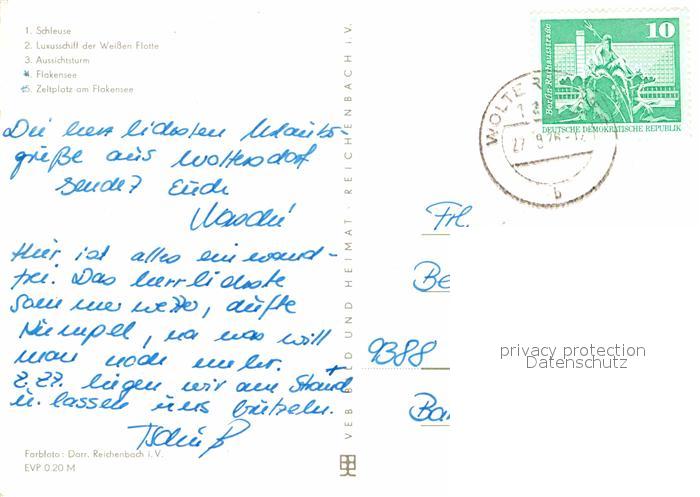 1. Schleuse
2. Luxusschiff der Weißen Flotte
3. Aussichtsturm
4. Flakensee
5. Zeltplatz am Flakensee
Die herrlichsten Urlaubs-
grüße aus Woltersdorf
sendet Euch
Hier ist alles einwand-
frei. Das herrlichste
Sommerwetter, dufte
Kumpel, na was will
man noch mehr.
Z. Zt. liegen wir am Strand
u. lassen uns brutzeln.
Tschüß
Farbfoto: Darr. Reichenbach i. V.
EVP 0.20 M
VEB BILD UND HEIMAT · REICHENBACH i. V.
10
Berlin, Rathausstraße
DEUTSCHE DEMOKRATISCHE REPUBLIK
WOLTER
b
Frl.
Be
9388
Ba
privacy protection
Datenschutz